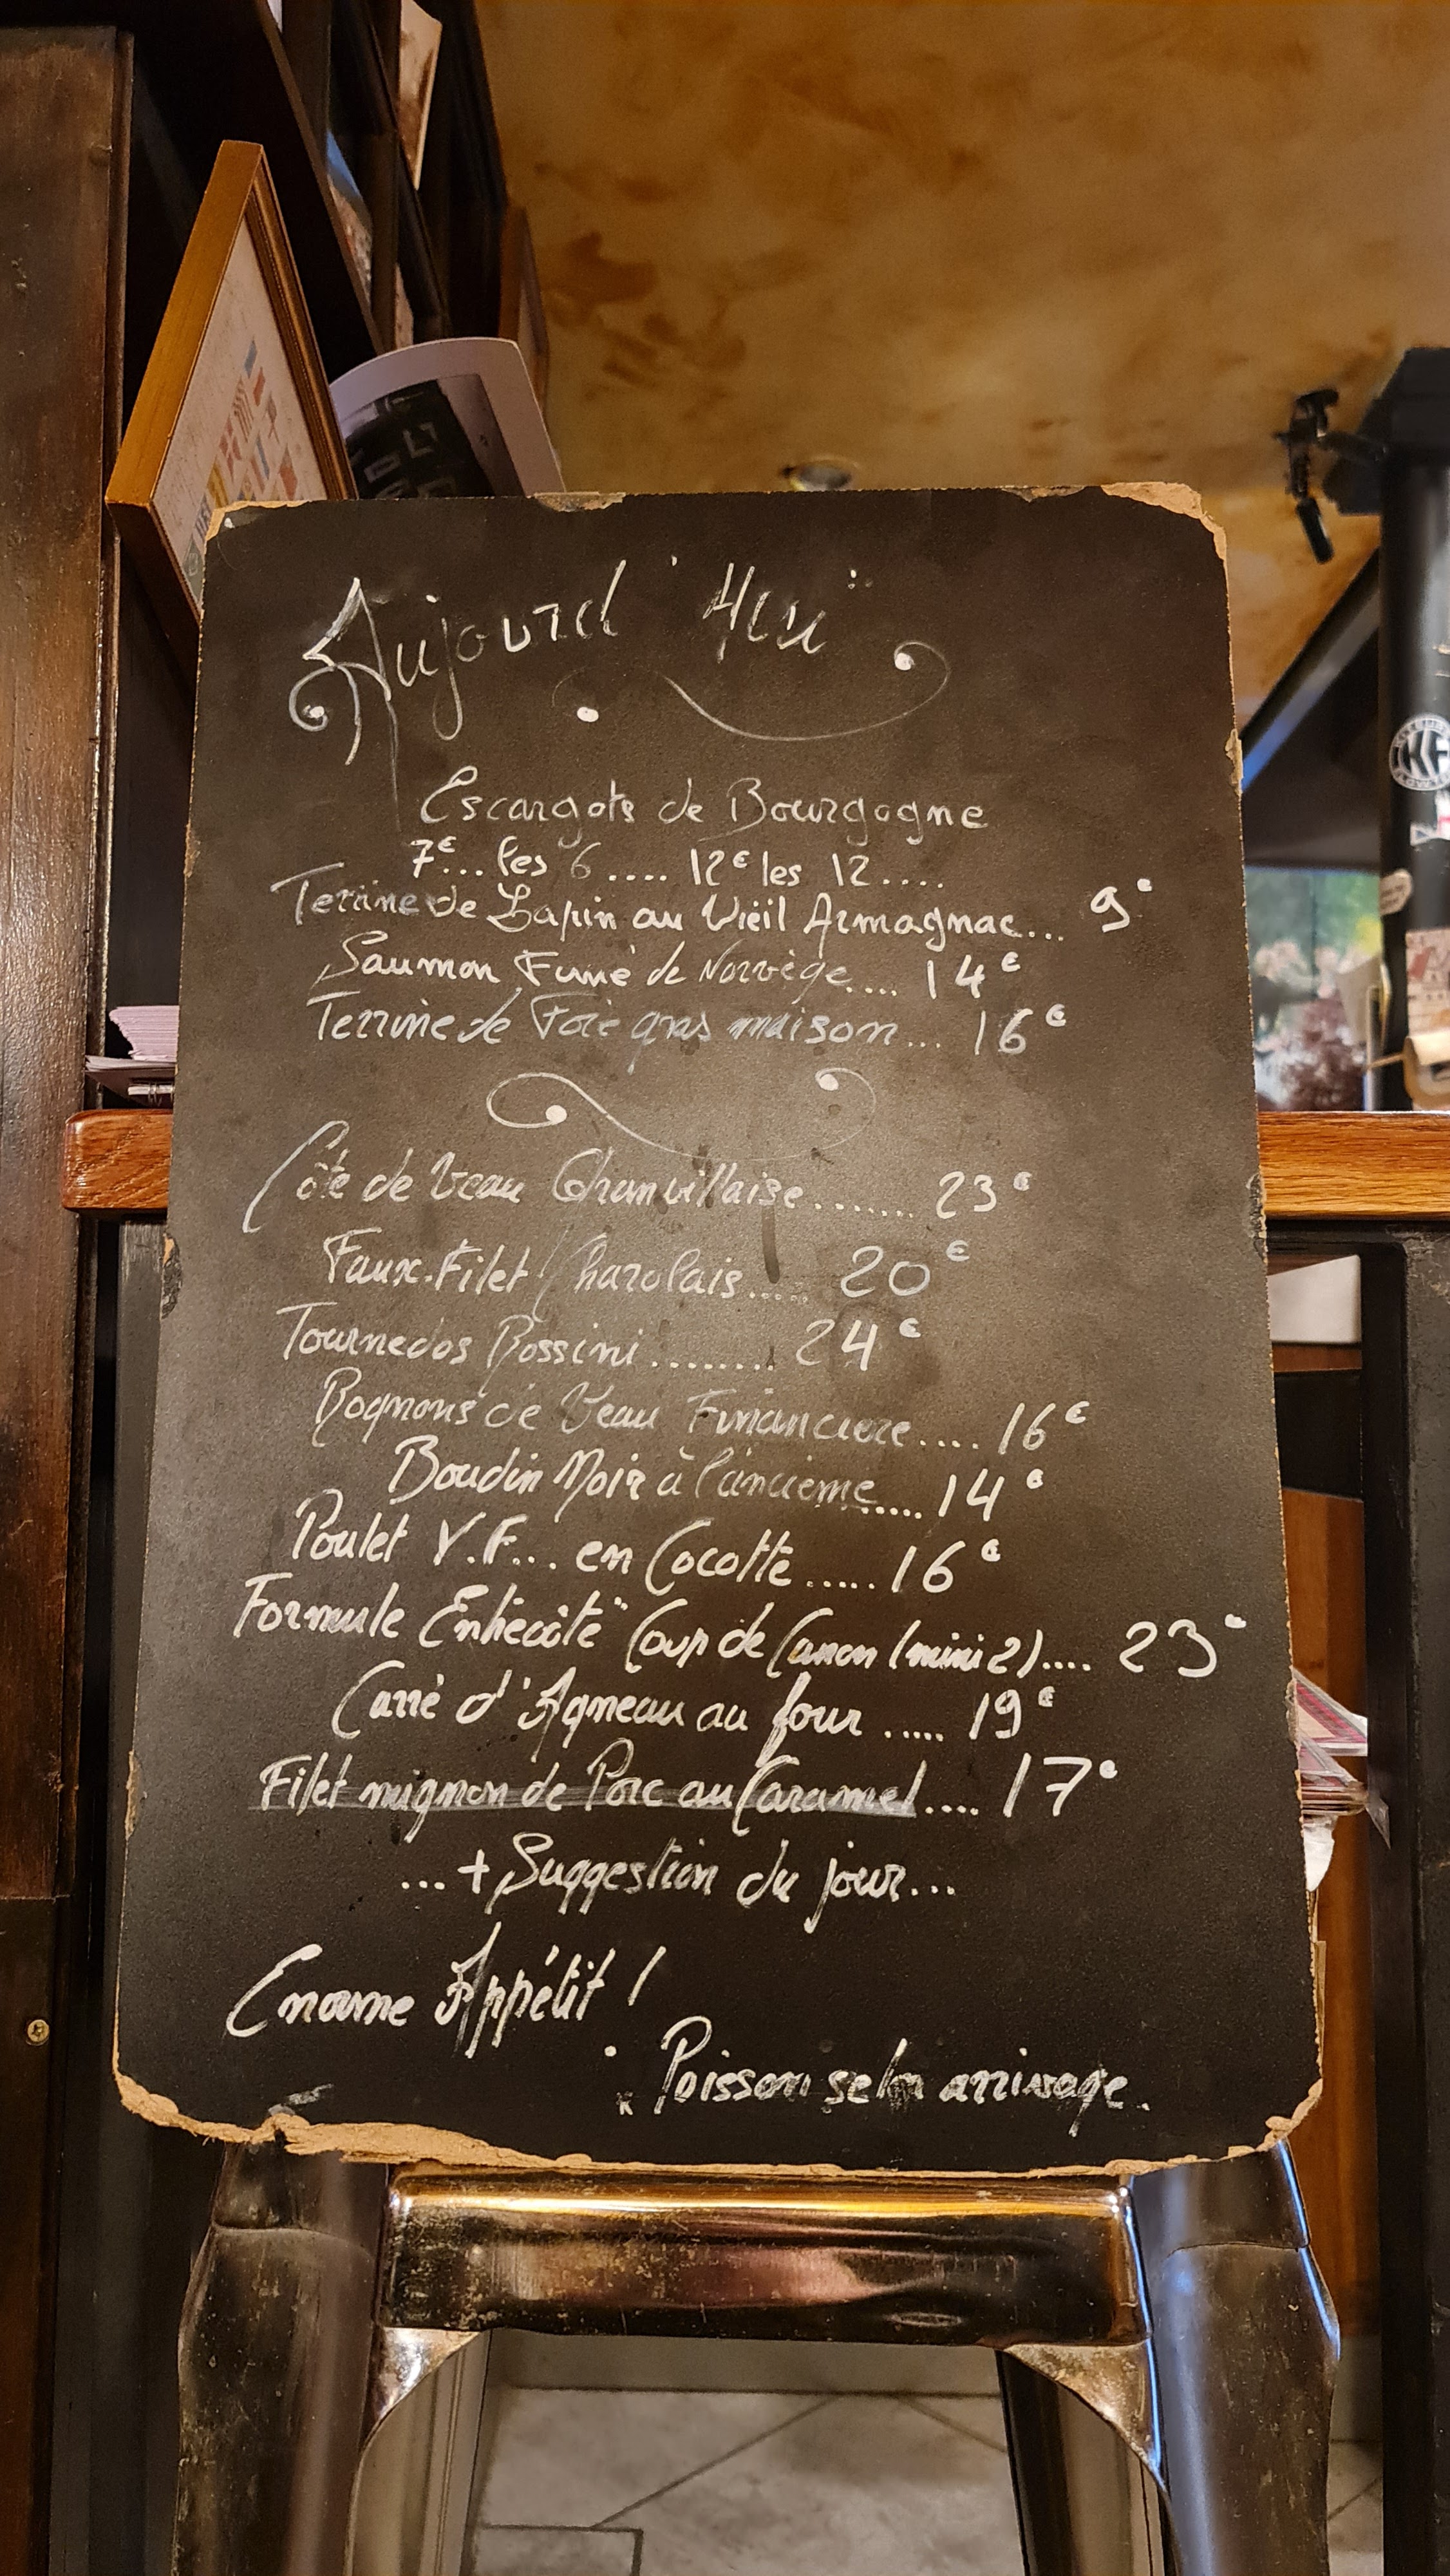 Aujourd'Hui
Escargots de Bourgogne
7€... les 6.... 12€ les 12....
Terrine de Lapin au Vieil Armagnac... 9€
Saumon Fumé de Norvège.... 14€
Terrine de Foie gras maison... 16€
Côte de Veau Chanvillaise....... 23€
Faux-Filet Charolais..... 20€
Tournedos Rossini........ 24€
Rognons de Veau Financière.... 16€
Boudin Noir à l'ancienne..... 14€
Poulet V.F... en Cocotte..... 16€
Formule Entrecôte "Coup de Canon (mini 2).... 23€
Carré d'Agneau au four ..... 19€
Filet mignon de Porc au Caramel.... 17€
... + Suggestion du jour...
Enorme Appétit !
Poisson selon arrivage.